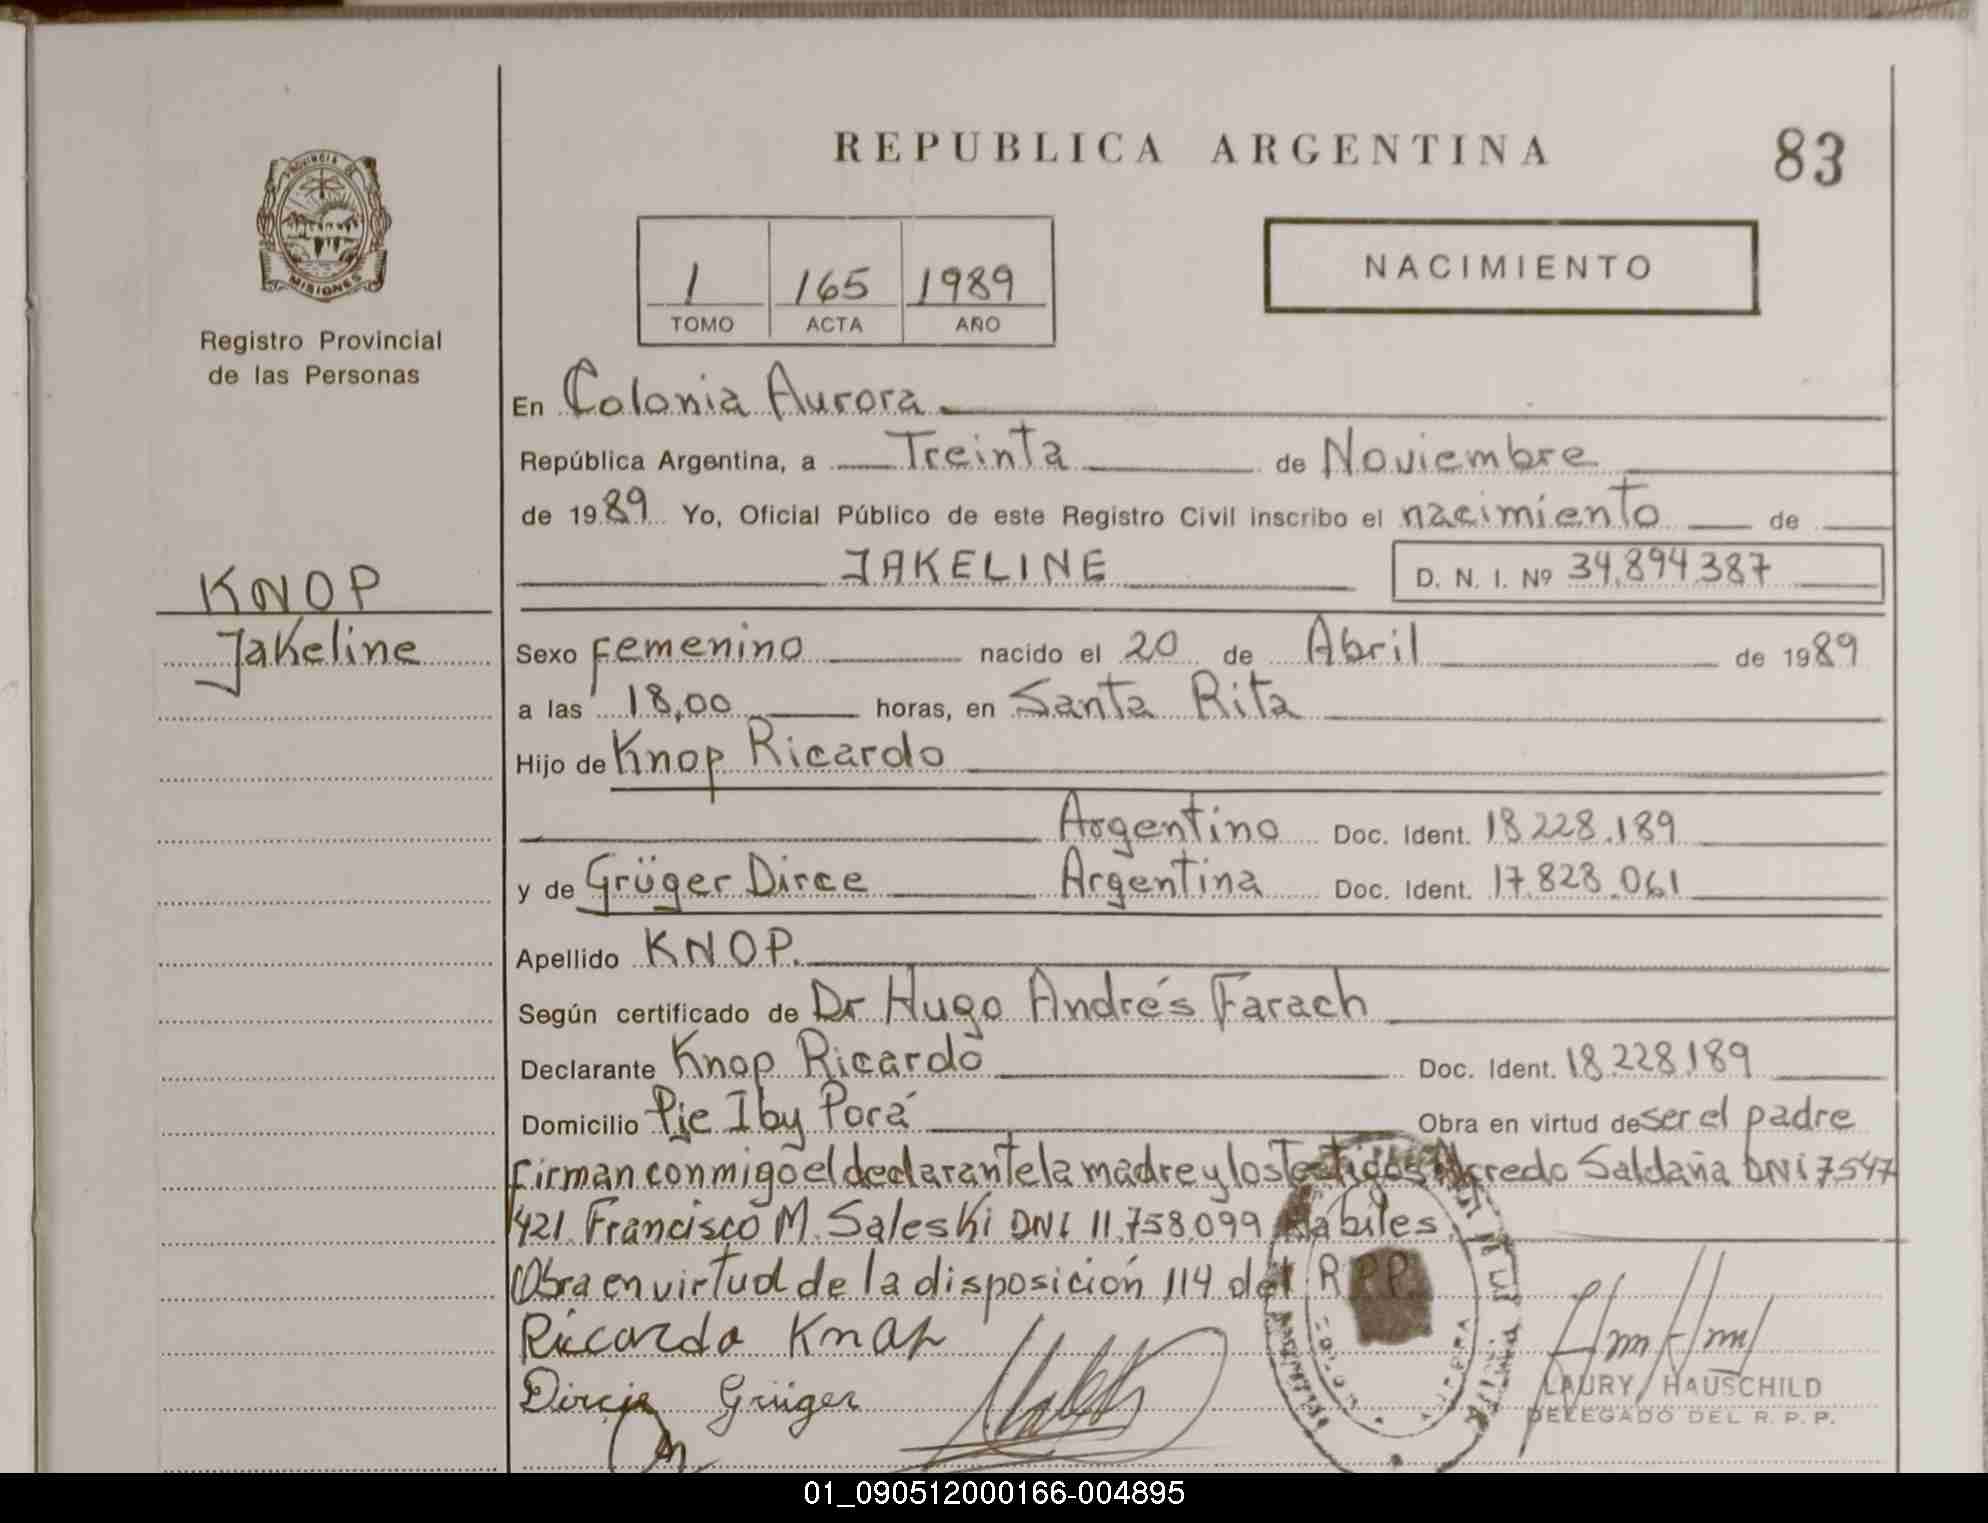 REPUBLICA ARGENTINA
83
PROVINCIA DE
MISIONES
Registro Provincial
de las Personas
1 165 1989
TOMO ACTA AÑO
NACIMIENTO
En Colonia Aurora
República Argentina, a Treinta de Noviembre
de 1989 Yo, Oficial Público de este Registro Civil inscribo el nacimiento de
JAKELINE D. N. I. Nº 34.894.387
KNOP
Jakeline
Sexo Femenino nacido el 20 de Abril de 1989
a las 18,00 horas, en Santa Rita
Hijo de Knop Ricardo
Argentino Doc. Ident. 18.228.189
y de Grüger Dirce Argentina Doc. Ident. 17.828.061
Apellido KNOP.
Según certificado de Dr Hugo Andrés Farach
Declarante Knop Ricardo Doc. Ident. 18.228.189
Domicilio Pje Iby Porá Obra en virtud de ser el padre
Firman conmigo el declarante la madre y los Testigos Saldaña DNI 7.547
421. Francisco M. Saleski DNI 11.758.099 Habiles.
Obra en virtud de la disposición 114 del R.P.P.
Ricardo Knop
Grüger
LAURY HAUSCHILD
DELEGADO DEL R. P. P.
01_090512000166-004895